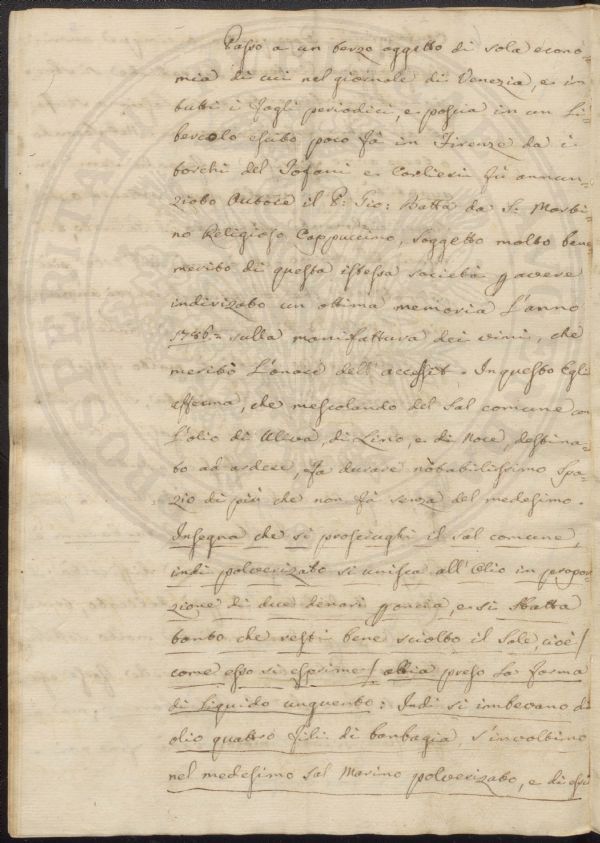 Passo a un terzo oggetto di sola econo=
mia di cui nel giornale di Venezia, e in
tutti i fogli periodici, e poscia in un Li=
bercolo escito poco fà in Firenze da i
torchi del Tofani e Carlieri fù annun=
ziato Autore il P: Gio: Batta da S: Marti=
no Religioso Cappuccino, soggetto molto bene
merito di questa istessa società p avere
indirizato un ottima memoria L'anno
1786= sulla manifattura dei vini, che
meritò L'onore dell'accessit. In questo Egli
afferma, che mescolando del Sal comune con
L'olio di Uliva, di Lino, e di Noce, destina=
to ad ardere, fa durare notabilissimo spa=
zio di più che non fà senza del medesimo.
Insegna che si prosciughi il Sal comune,
indi polverizato si unisca all'Olio in propor=
zione di due denari p oncia, e si sbatta
tanto che resti bene sciolto il Sale, cioè /
come esso si esprime / abbia preso La forma
di Liquido unguento: Indi si imbevano di
olio quattro fili di bambagia, s'involtino
nel medesimo Sal Marino polverizato, e di essi